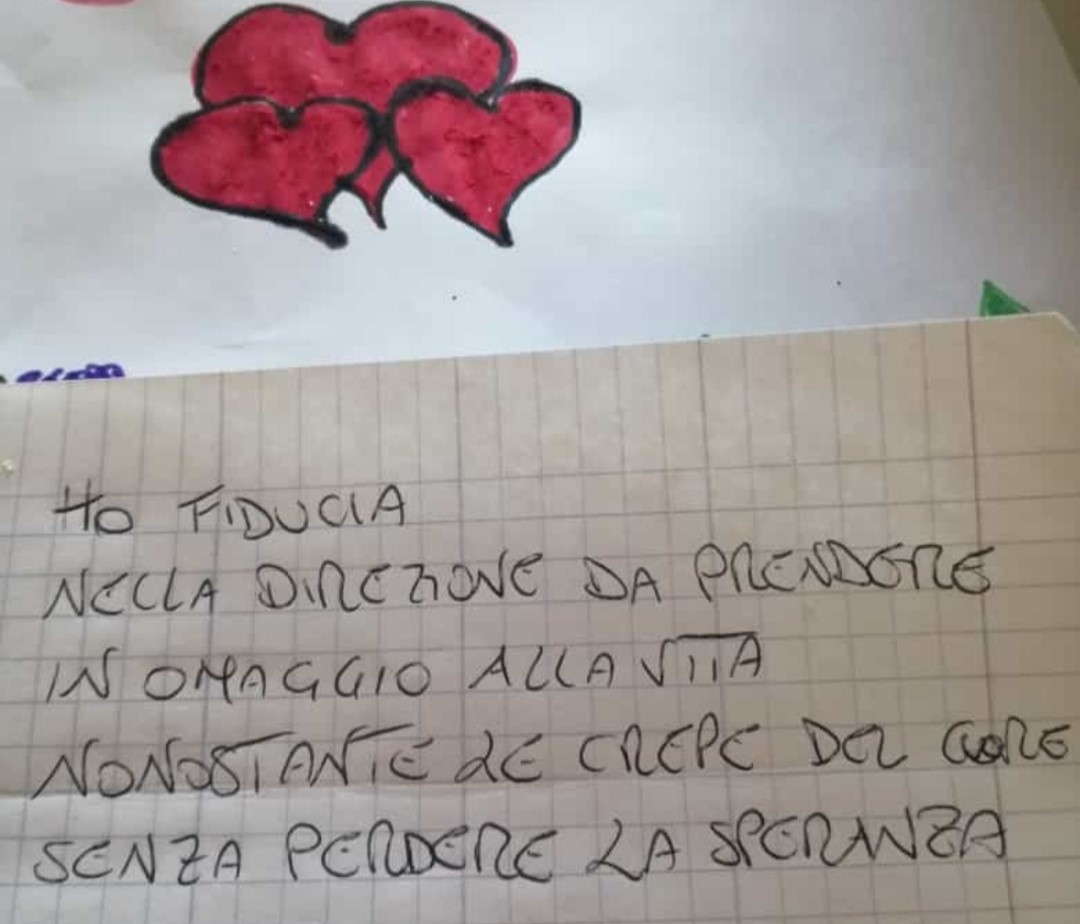 HO FIDUCIA
NELLA DIREZIONE DA PRENDERE
IN OMAGGIO ALLA VITA
NONOSTANTE LE CREPE DEL CUORE
SENZA PERDERE LA SPERANZA